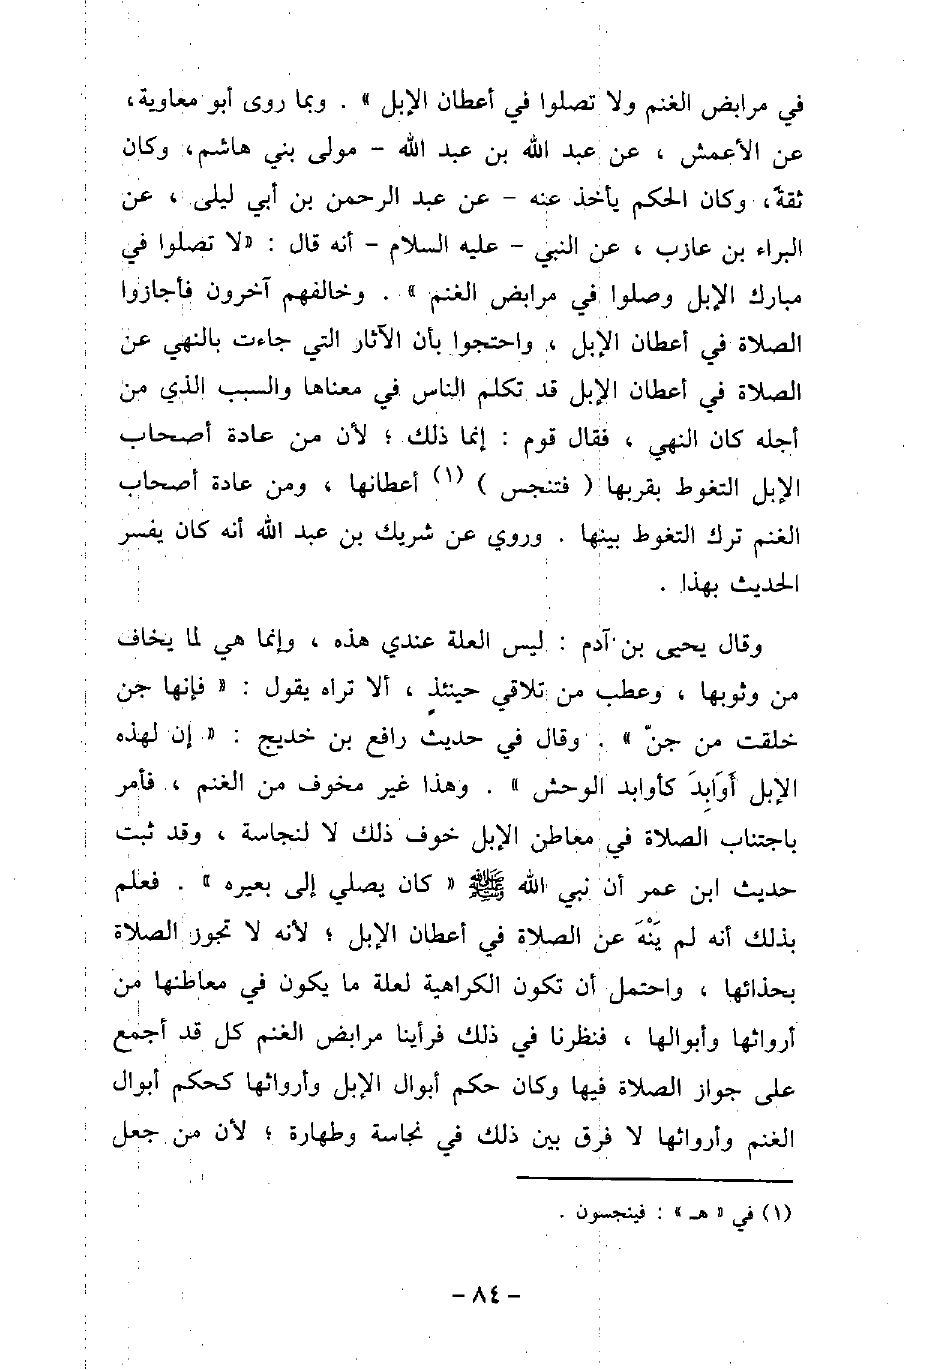 في مرابض الغنم ولا تصلوا في أعطان الإبل » . وبما روى أبو معاوية،
عن الأعمش ، عن عبد الله بن عبد الله – مولى بني هاشم، وكان
ثقةً، وكان الحكم يأخذ عنه – عن عبد الرحمن بن أبي ليلى ، عن
البراء بن عازب ، عن النبي – عليه السلام – أنه قال : «لا تصلوا في
مبارك الإبل وصلوا في مرابض الغنم » . وخالفهم آخرون فأجازوا
الصلاة في أعطان الإبل ، واحتجوا بأن الآثار التي جاءت بالنهي عن
الصلاة في أعطان الإبل قد تكلم الناس في معناها والسبب الذي من
أجله كان النهي ، فقال قوم : إنما ذلك ؛ لأن من عادة أصحاب
الإبل التغوط بقربها ( فتنجس ) (١) أعطانها ، ومن عادة أصحاب
الغنم ترك التغوط بينها . وروي عن شريك بن عبد الله أنه كان يفسر
الحديث بهذا .
وقال يحيى بن آدم : ليس العلة عندي هذه ، وإنما هي لما يخاف
من وثوبها ، وعطب من تلاقي حينئذٍ ، ألا تراه يقول : « فإنها جن
خلقت من جنّ » . وقال في حديث رافع بن خديج : « إن لهذه
الإبل أَوَابِدَ كأوابد الوحش » . وهذا غير مخوف من الغنم ، فأمر
باجتناب الصلاة في معاطن الإبل خوف ذلك لا لنجاسة ، وقد ثبت
حديث ابن عمر أن نبي الله ﷺ « كان يصلي إلى بعيره » . فعلم
بذلك أنه لم يَنْهَ عن الصلاة في أعطان الإبل ؛ لأنه لا تجوز الصلاة
بحذائها ، واحتمل أن تكون الكراهية لعلة ما يكون في معاطنها من
أرواثها وأبوالها ، فنظرنا في ذلك فرأينا مرابض الغنم كل قد أجمع
على جواز الصلاة فيها وكان حكم أبوال الإبل وأرواثها كحكم أبوال
الغنم وأرواثها لا فرق بين ذلك في نجاسة وطهارة ؛ لأن من جعل
(١) في « هـ » : فينجسون .
– ٨٤ –